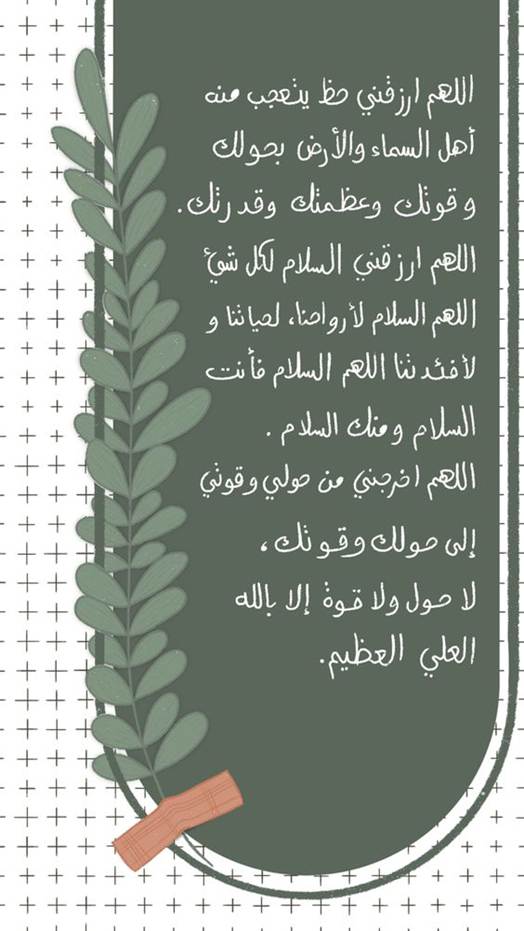 اللهم ارزقني حظ يتعجب منه
أهل السماء والأرض بحولك
وقوتك وعظمتك وقدرتك.
اللهم ارزقني السلام لكل شيء
اللهم السلام لأرواحنا، لحياتنا و
لأفئدتنا اللهم السلام فأنت
السلام ومنك السلام .
اللهم اخرجني من حولي وقوتي
إلى حولك وقوتك ،
لا حول ولا قوة إلا بالله
العلي العظيم.